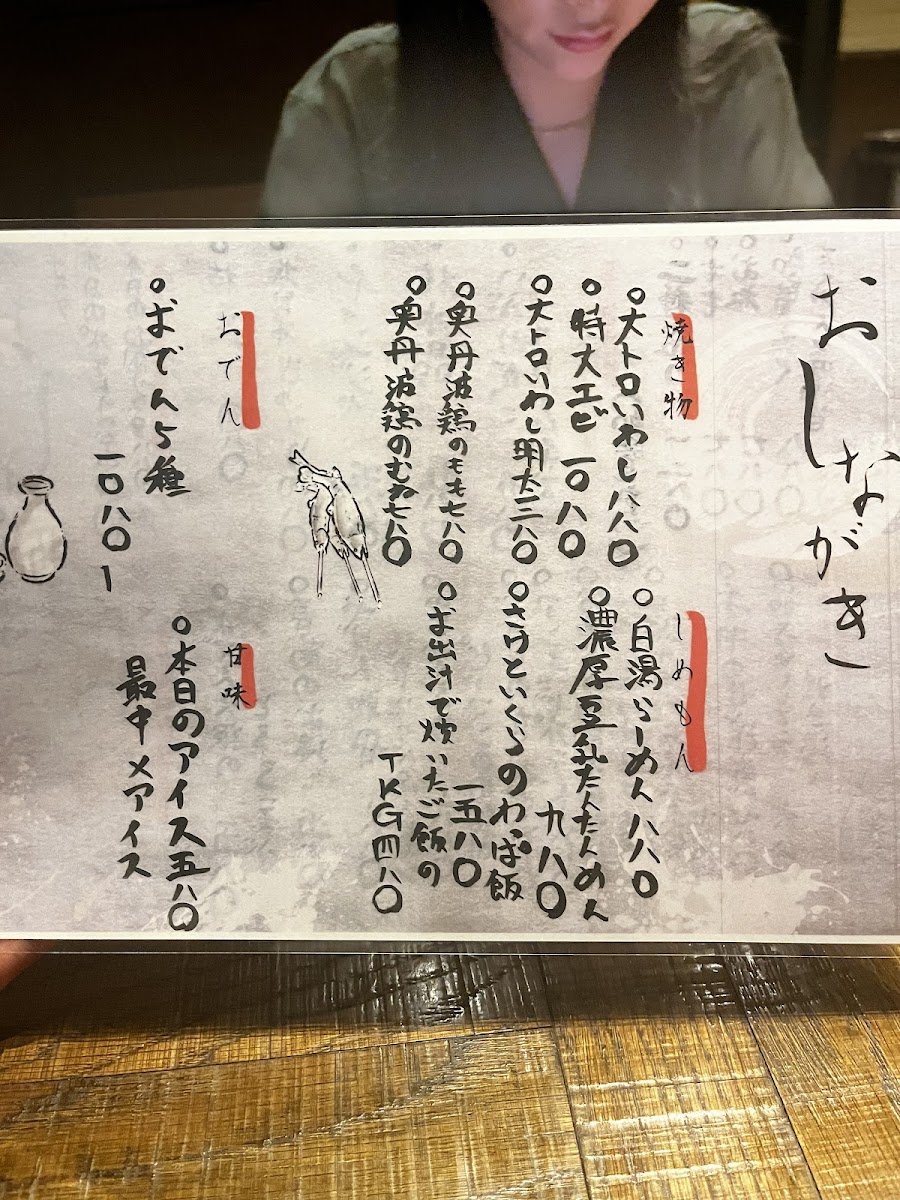 おしながき
焼き物
○大トロいわし八八〇
○特大エビ 一〇八〇
○大トロいわし明太三八〇
○奥丹波鶏のもも七八〇
○奥丹波鶏のむね七八〇
しめもん
○白湯らーめん八八〇
○濃厚豆乳たんたんめん
九八〇
○さけといくらのわっぱ飯
一五八〇
○お出汁で炊いたご飯の
TKG四八〇
おでん
○おでん5種
一〇八〇
甘味
○本日のアイス五八〇
最中×アイス